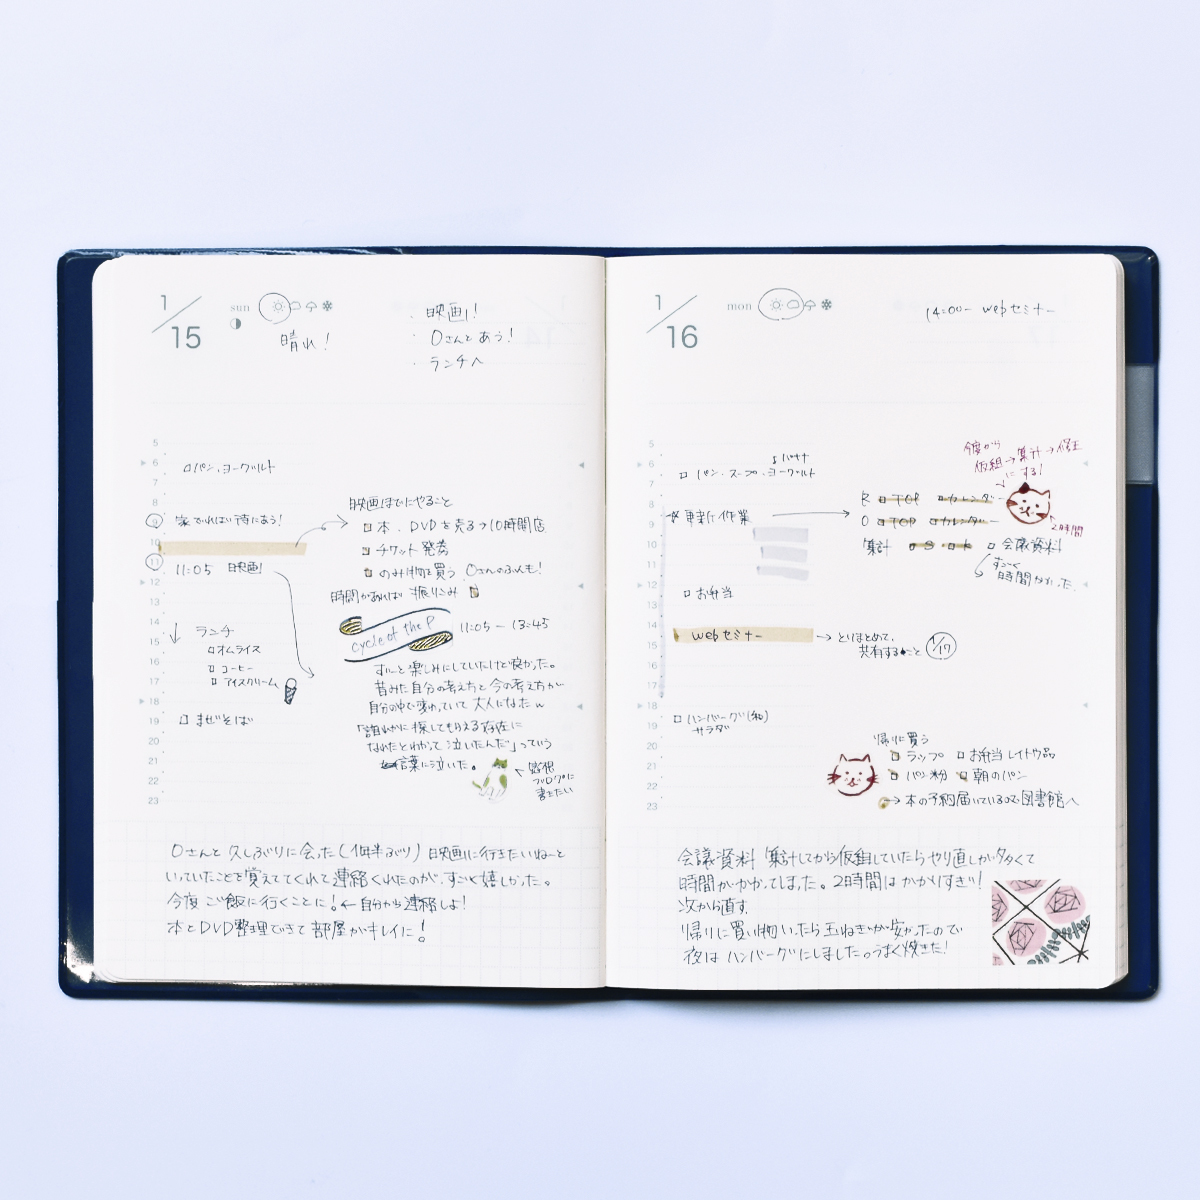 1/15 sun
晴れ!
・映画!
・Oさんとあう!
・ランチへ
5
6 □パン、ヨーグルト
7
8
9 家でれば待にあう!
10
11 11:05 映画!
12
13
14 ランチ
15 □オムライス
16 □コーヒー
17 □アイスクリーム
18
19 □まぜそば
20
21
22
23
映画までにやること
□本、DVDを売る→10時開店
□チケット発券
□のみ物を買う Oさんのぶんも!
時間があれば 振りこみ □
cycle of the P 11:05 - 13:45
ずっと楽しみにしていたけど良かった。
昔みた自分の考え方と今の考え方が
自分の中で変わっていて大人になったw
「誰かに探してもらえる存在に
なれたとわかって泣いたんだ」っていう
言葉に泣いた。
←感想
ブログに
書きたい
Oさんと久しぶりに会った(1年半ぶり)映画に行きたいねーと
いっていたことを覚えててくれて連絡くれたのが、すごく嬉しかった。
今度ご飯に行くことに!←自分から連絡しよ!
本とDVD整理できて部屋がキレイに!
1/16 mon
14:00- webセミナー
5
6 □パン、スープ、ヨーグルト
バナナ
7
8 更新作業
9
10
11
12 □お弁当
13
14 webセミナー →とりまとめて、
15 共有すること 1/17
16
17
18 □ハンバーグ(和)
19 サラダ
20
21
22
23
今度から
仮組→集計→修正
にする!
R □TOP □カレンダー
O □TOP □カレンダー
2時間
集計 □S □k □会議資料
すごく
時間かかった
帰りに買う
□ラップ □お弁当レイトウ品
□パン粉 □朝のパン
→本の予約届いているので図書館へ
会議資料 集計してから仮組していたらやり直しが多くて
時間がかかってしまった。2時間はかかりすぎ!
次から直す
帰りに買い物いったら玉ねぎが安かったので
夜はハンバーグにしました。うまく焼きた!